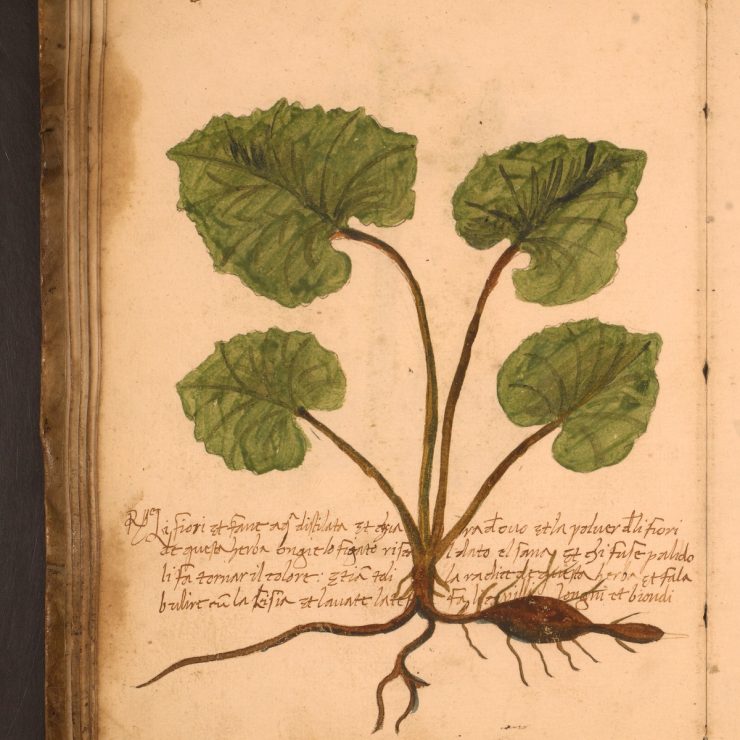 Li fiori et fane aq distilata et chia ra d ouo et la poluer d li fiori
de questa herba ongie lo figato risca l dato el sana et chi fuse palido
li fa tornar il colore: et iā toi la radice de questa herba et fala
bulire cū la lesia et lauate la te fa li longhi et biondi